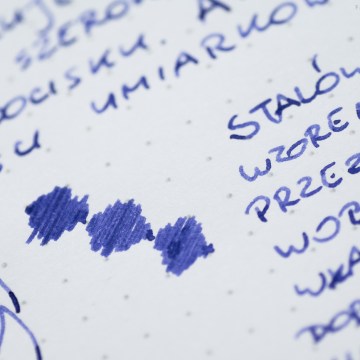 SZERO
OCISKU. A
UMIARKO
SU
STALÓ
WZORE
PRZEZ
WOR
WKA
DOP